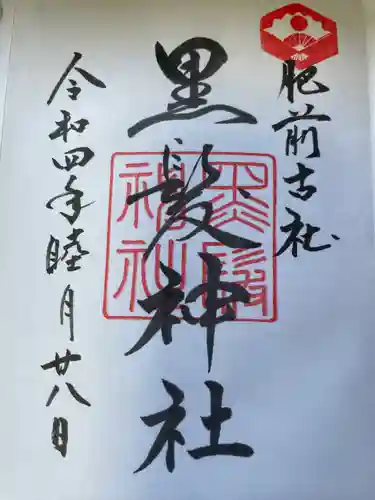 肥前古社
黒髪神社
黒髪
神社
令和四年睦月廿八日